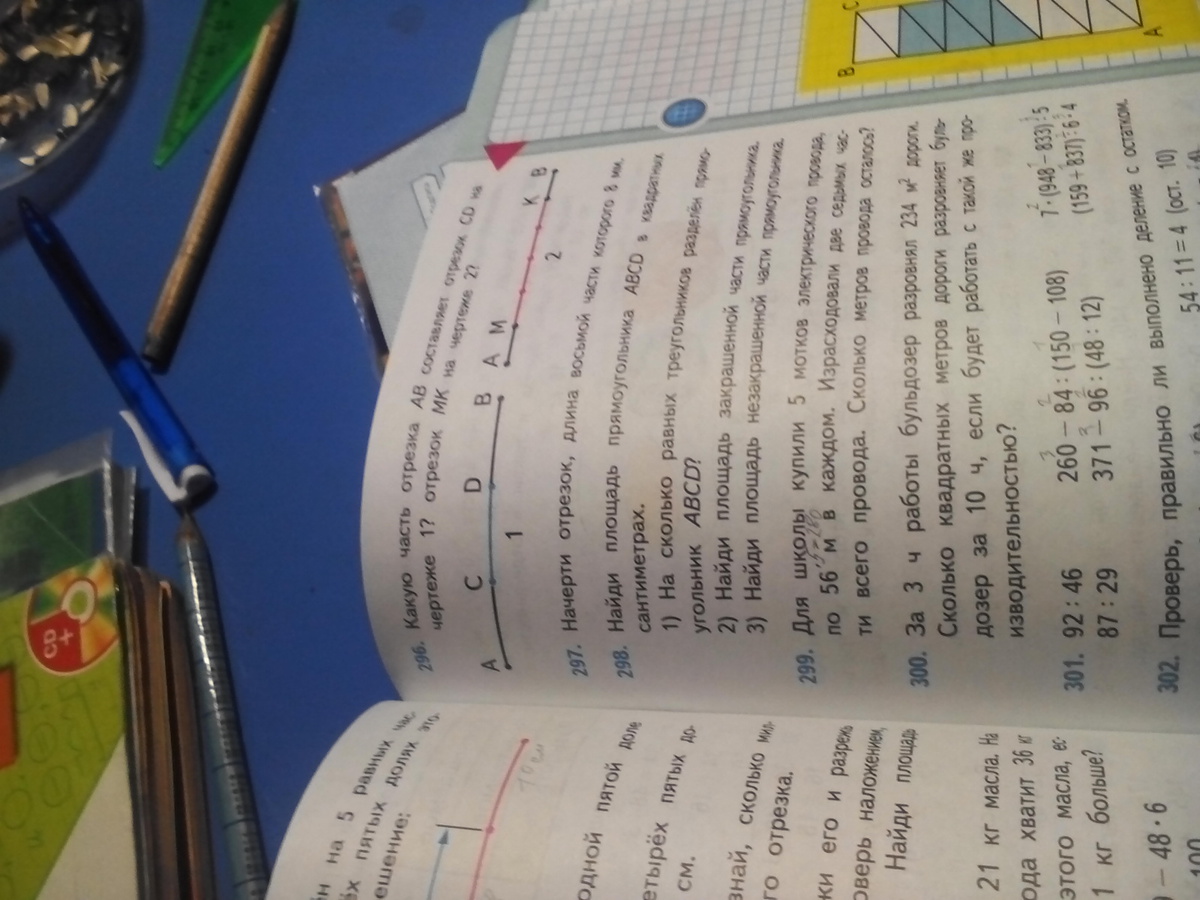 296. Какую часть отрезка AB составляет отрезок CD на
чертеже 1? отрезок MK на чертеже 2?
A C D B A M K B
1 2
297. Начерти отрезок, длина восьмой части которого 8 мм.
298. Найди площадь прямоугольника ABCD в квадратных
сантиметрах.
1) На сколько равных треугольников разделён прямо-
угольник ABCD?
2) Найди площадь закрашенной части прямоугольника.
3) Найди площадь незакрашенной части прямоугольника.
B C
A
299. Для школы купили 5 мотков электрического провода,
по 56 м в каждом. Израсходовали две седьмых час-
ти всего провода. Сколько метров провода осталось?
300. За 3 ч работы бульдозер разровнял 234 м² дороги.
Сколько квадратных метров дороги разровняет буль-
дозер за 10 ч, если будет работать с такой же про-
изводительностью?
301. 92 : 46 260 − 84 : (150 − 108) 7 · (948 − 833) : 5
87 : 29 371 − 96 : (48 : 12) (159 + 837) : 6 : 4
302. Проверь, правильно ли выполнено деление с остатком.
54 : 11 = 4 (ост. 10)
CD
+
на 5 равных час
пятых долях это
ешение:
10 см
одной пятой доле
етырёх пятых до-
см.
знай, сколько мил-
го отрезка.
ки его и разреж
оверь наложением,
Найди площадь
21 кг масла. На
ода хватит 36 кг
этого масла, ес-
1 кг больше?
− 48 · 6
100